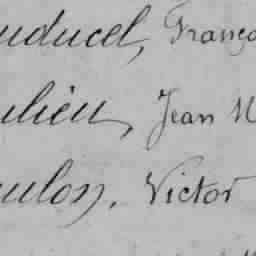 uducel, França
ulieu, Jean M
oulon, Victor